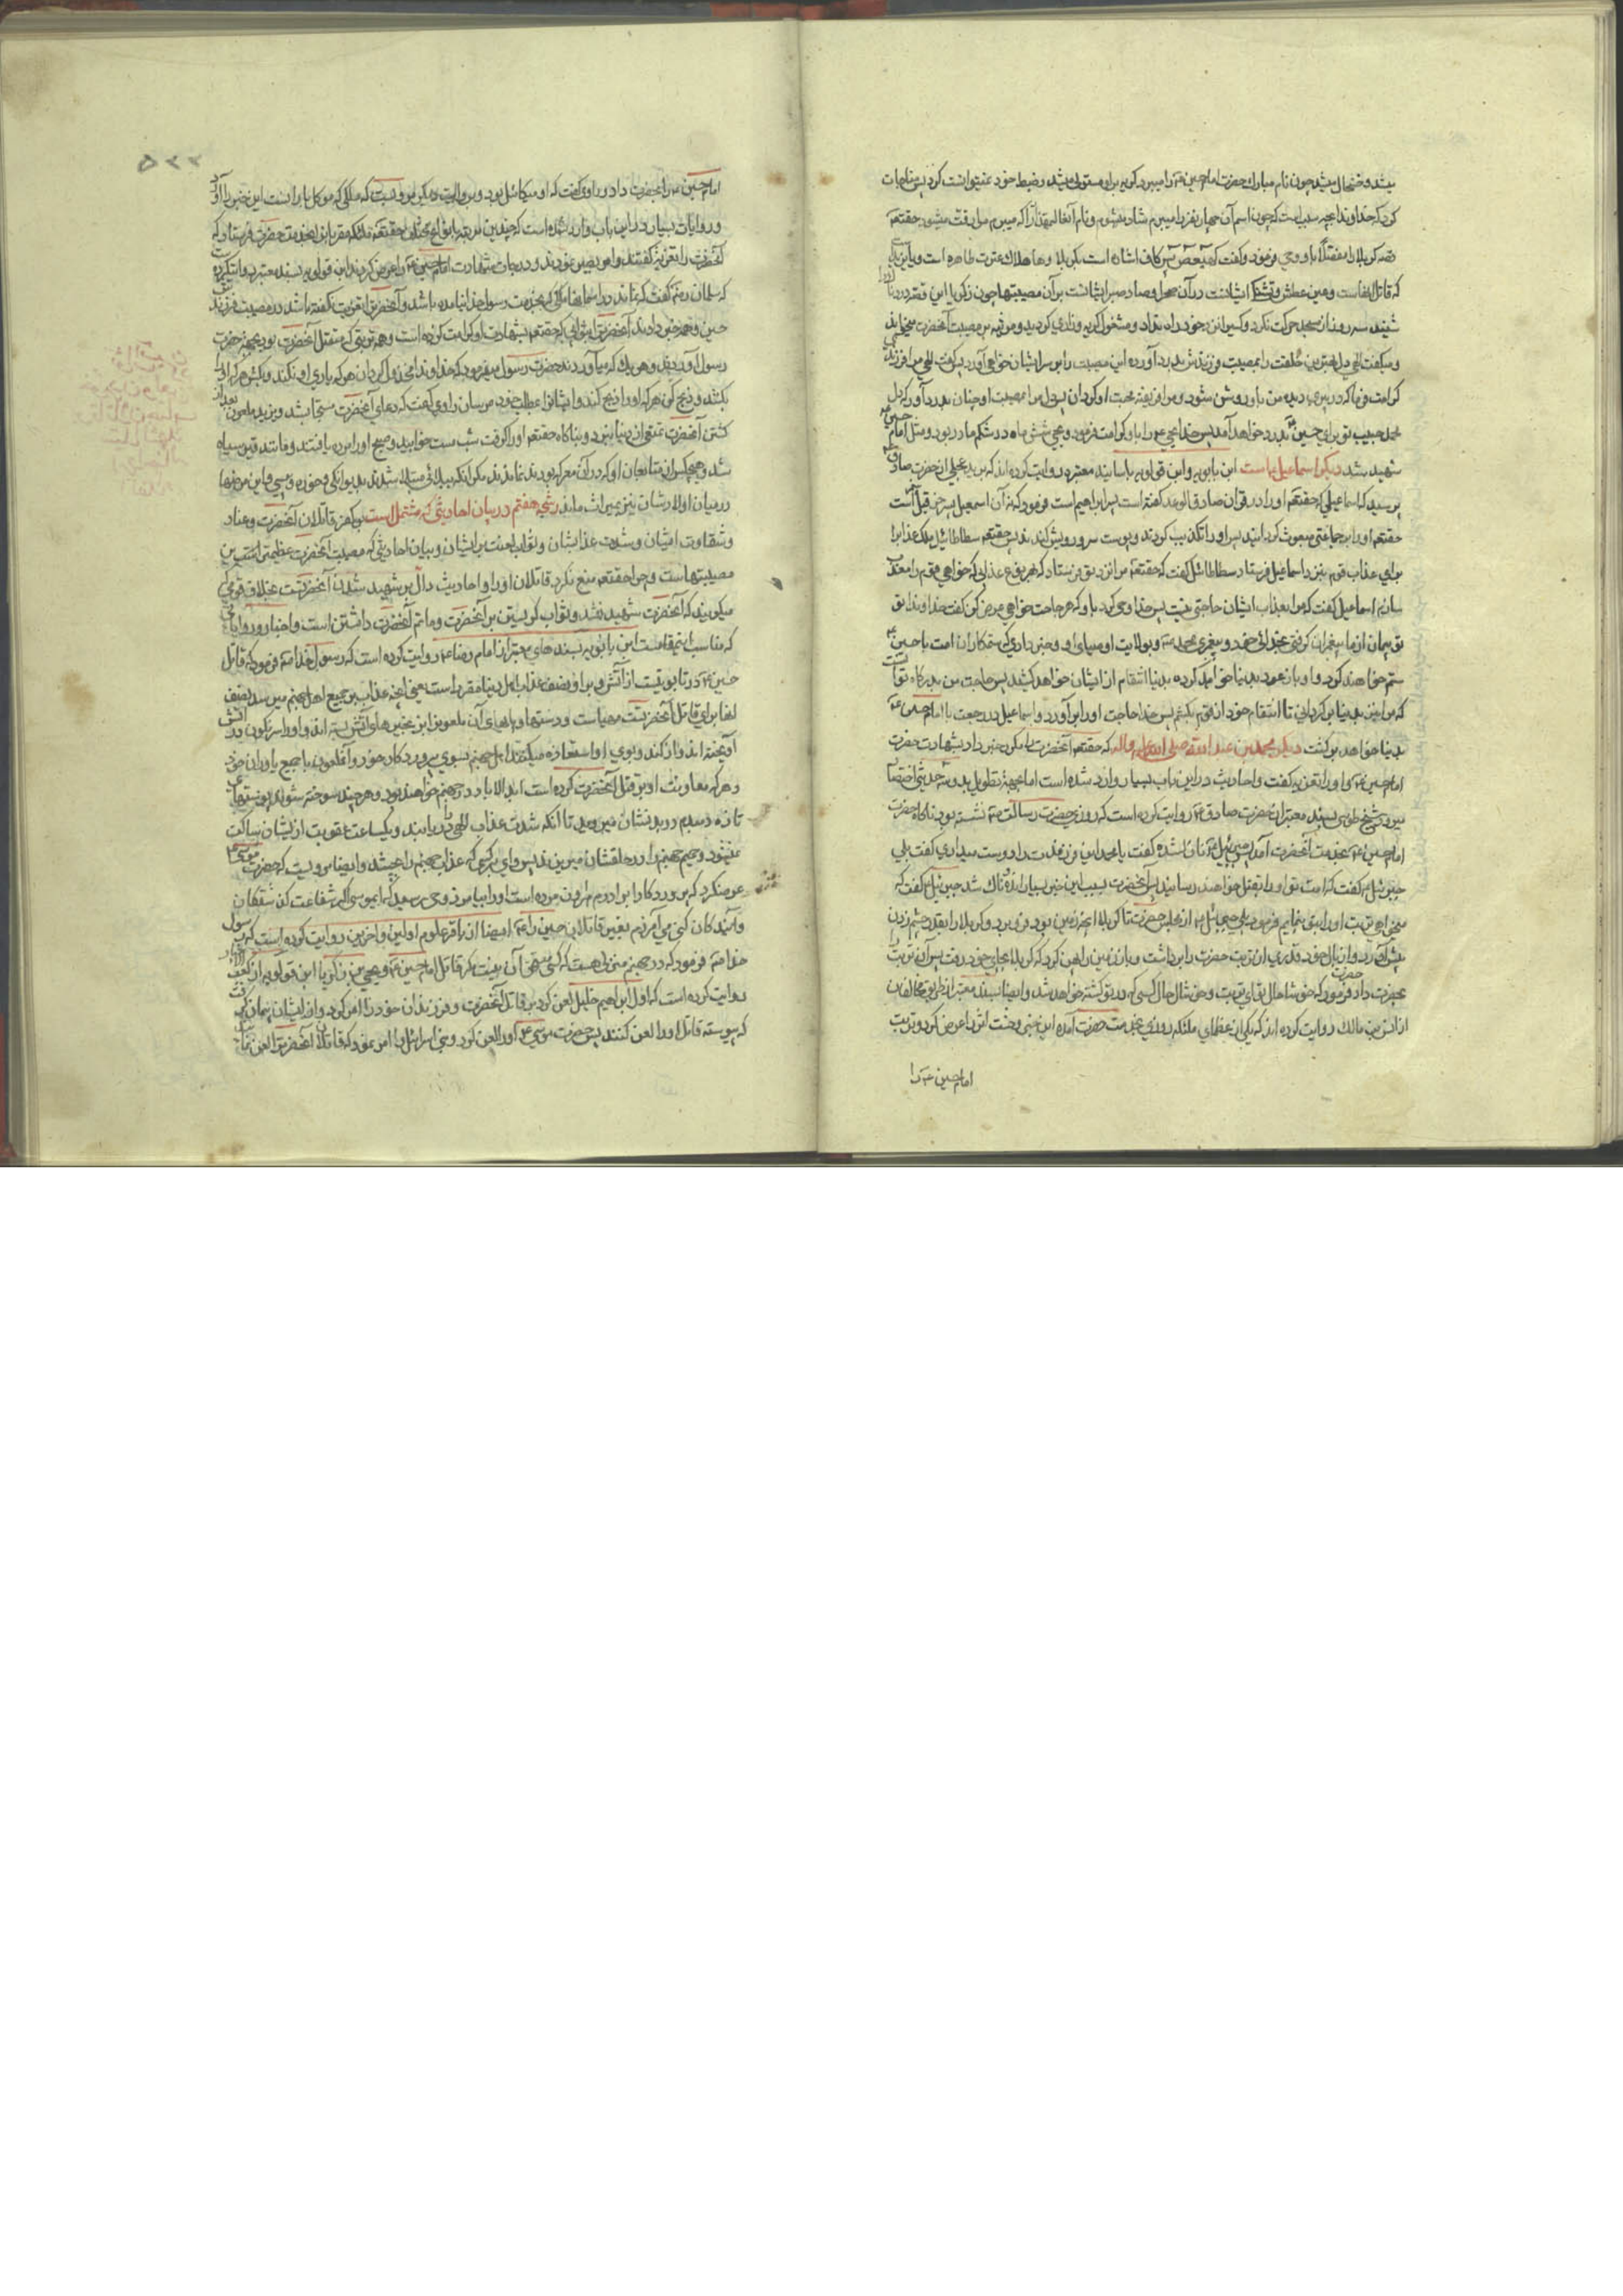 میشد و خوشحال میشد چون نام مبارک حضرت امام حسین ع را میبرد گریه بر او مستولی میشد و ضبط خود نمیتوانست کرد پس مناجات
کرد که خداوندا بچه سبب است که چون اسم آن چهار نفر را میبرم شاد میشوم و نام آنعالیمقدار را که میبرم مرا رقت میشود حقتعم
قصه کربلا را مفصلا باو وحی فرمود و گفت کهیعص پس کاف اشاره است بکربلا و ها هلاک عترت طاهره است و یا یزید
که قاتل ایشانست و عین عطش و تشنگی ایشانست در آن صحرا و صاد صبر ایشانست بر آن مصیبتها چون زکریا این قصه دردناک را
شنید سه روز از مسجد حرکت نکرد و کسیرا نزد خود راه نداد و مشغول گریه و زاری گردید و مرثیه بر مصیبت آنحضرت میخواند
و میگفت الهی دل بهترین خلقت را بمصیبت فرزندش بدرد آورده این مصیبت را بر سر ایشان خواهی آورد پس گفت الهی مرا فرزندی
کرامت فرما که در پیری دیده من باو روشن شود و مرا فریفته محبت او گردان پس دل مرا بمصیبت او چنان بدرد آور که دل
محمد حبیب تو برای حسین ع بدرد خواهد آمد پس خدا یحیی ع را باو کرامت فرمود و یحیی شش ماه در شکم مادر بود و مثل امام حسین
شهید شد دیگر اسماعیل ع است ابن بابویه و ابن قولویه باسانید معتبره روایت کرده اند که برید عجلی از حضرت صادق ع
پرسید که اسماعیلی که حقتعم او را در قرآن صادق الوعد گفته است پسر ابراهیم است فرمود که نه آن اسمعیل پسر حزقیل است
حقتعم او را بر جماعتی مبعوث گردانید پس او را تکذیب کردند و پوست سر و رویش کندند پس حقتعم سطاطائیل ملک عذاب را
برای عذاب قوم بنزد اسماعیل فرستاد سطاطائیل گفت که حقتعم مرا نزد تو فرستاد که بهر نوع عذابی که خواهی قوم را معذب
سازم اسماعیل گفت که مرا بعذاب ایشان حاجتی نیست پس خدا وحی کرد باو که هر حاجت خواهی عرض کن گفت خداوندا تو
پیمان از ما پیغمبران گرفتی بخدائی خود و پیغمبری محمد ص و بولایت اوصیای او و خبر دادی که ستمکاران امت با حسین ع
ستم خواهند کرد و او باز عود بدنیا خواهد کرد که بدنیا انتقام از ایشان خواهد کشید پس حاجت من بدرگاه تو آنست
که مرا نیز بدنیا برگردانی تا انتقام خود از قوم بکشم پس خدا حاجت او را برآورد و اسماعیل در رجعت با امام حسین ع
بدنیا خواهد برگشت دیگر محمد بن عبدالله صلی الله علیه و اله که حقتعم آنحضرت را مکرر خبر داد بشهادت حضرت
امام حسین ع و او را تعزیه گفت و احادیث در این باب بسیار وارد شده است اما بجهة تطویل بدو سه حدیث اختصار
میرود شیخ طوسی بسند معتبر از حضرت صادق ع روایت کرده است که روزی حضرت رسالت ص نشسته بود ناگاه حضرت
امام حسین ع بخدمت آنحضرت آمد پس جبرئیل ع نازل شده گفت یا محمد این فرزندت را دوست میداری گفت بلی
جبرئیل ع گفت که امت تو او را بقتل خواهند رسانید پس آنحضرت بسبب این خبر بسیار اندوهناک شد جبرئیل گفت که
میخواهی تربت او را بتو بنمایم فرمود بلی جبرئیل ع از محل حضرت تا کربلا آنچه زمین بود فرو برد و کربلا را بقدر چشم زدن
پیش آورد و از بال خود قدری از تربت حضرت را برداشت و باز زمین را پهن کرد که کربلا بجای خود رفت پس آن تربت را
بحضرت داد حضرت فرمود که خوشا حال تو ای تربت و خوشا حال کسی که در تو کشته خواهد شد و ایضا بسند معتبر از طریق مخالفان
از انس بن مالک روایت کرده اند که یکی از عظمای ملائکه روزی بخدمت حضرت آمده این خبر وحشت اثر را عرض کرد و تربت
امام حسین ع را
٥٢٢
امام حسین ع را بحضرت داد و راوی گفت که او میکائیل بود و بروایت دیگر مرویست که ملکی که موکل باران است این خبر را آورد
و روایات بسیار در این باب وارد شده است که چندین مرتبه بانواع مختلفه حقتعم ملائکه مقربان بخدمت حضرت فرستاد که
آنحضرت را تعزیه گفتند و امر بصبر نمودند و درجات شهادت امام حسین ع را عرض کردند ابن قولویه بسند معتبر روایت کرده است
که سلمان رض گفت که نماند در آسمانها ملکی که بخدمت رسول خدا نیامده باشد و آنحضرت را تعزیت نگفته باشد در مصیبت فرزندش
حسین و همه خبر دادند آنحضرت را بثوابی که حقتعم بشهادت او کرامت کرده است و همه تربتی که مقتل آنحضرت بود بجهة حضرت
رسول آوردند و هر یک که میآوردند حضرت رسول میفرمود که خداوندا مخذول گردان هر که یاری او نکند و بکش هر که او را
بکشد و ذبح کن هر که او را ذبح کند و ایشانرا بمطلب خود مرسان راوی گفت که دعای آنحضرت مستجاب شد و یزید ملعون بعد از
کشتن آنحضرت تمتعی از دنیا نبرد و بناگاه حقتعم او را گرفت شب مست خوابید و صبح او را مرده یافتند و مانند قیر سیاه
شد و هیچکس از متابعان او که در آن معرکه بودند نماندند مگر آنکه ببلائی مبتلا شدند بدیوانگی و خوره و پیسی و این مرضها
در میان اولادشان نیز بمیراث ماند رشحه هفتم در بیان احادیثی که مشتمل است بر کفر قاتلان آنحضرت و عناد
و شقاوت ایشان و شدت عذاب ایشان و ثواب لعنت بر ایشان و بیان احادیثی که مصیبت آنحضرت عظیمترین
مصیبتهاست و چرا حقتعم منع نکرد قاتلان او را و احادیث دال بر شهید شدن آنحضرتست بخلاف قومی که
میگویند که آنحضرت شهید نشد و ثواب گریستن بر آنحضرت و ماتم آنحضرت داشتن است و اخبار و روایاتی
که مناسب اینمقامست ابن بابویه بسندهای معتبر از امام رضا ع روایت کرده است که رسول خدا ص فرمود که قاتل
حسین ع در تابوتیست از آتش و بر او نصف عذاب اهل دنیا مقرر است یعنی آنچه عذاب بر جمیع اهل جهنم میرسد نصف
آنها برای قاتل آنحضرتست مهیاست و دستها و پاهای آن ملعونرا بزنجیرهای آتش بسته اند و او را سرنگون در آتش
آویخته اند و از گند و بوی او استعاذه میکنند اهل جهنم بسوی پروردگار خود و آنملعون با جمیع یاوران خود
و هر که معاونت او بر قتل آنحضرت کرده است ابدالاباد در جهنم خواهند بود و هر چند سوخته شود پوستهای
تازه دمبدم در بدنشان میروید تا آنکه شدت عذاب الهی را دریابند و یکساعت عقوبت از ایشان ساکت
نمیشود و حمیم جهنم را در حلقشان میریزند پس وای بر کسی که عذاب جهنم را بچشد و ایضا مرویست که حضرت موسی ع
عرض کرد که پروردگارا برادرم هارون مرده است او را بیامرز وحی رسید که ای موسی اگر شفاعت کنی پیشینیان
و آیندگان کنی می آمرزم بغیر قاتلان حسین را ع ایضا از باقر علوم اولین و آخرین روایت کرده است که رسول
خدا ص فرمود که در جهنم منزلی هست که کسی مستحق آن نیست مگر قاتل امام حسین ع و یحیی بن زکریا ابن قولویه از کعب الاحبار
روایت کرده است که اول ابراهیم خلیل لعن کرد بر قاتل آنحضرت و فرزندان خود را امر کرد و از ایشان پیمان گرفت
که پیوسته قاتل او را لعن کنند پس حضرت موسی ع او را لعن کرد و بنی اسرائیل را امر نمود که قاتل آنحضرت را لعن نمایند